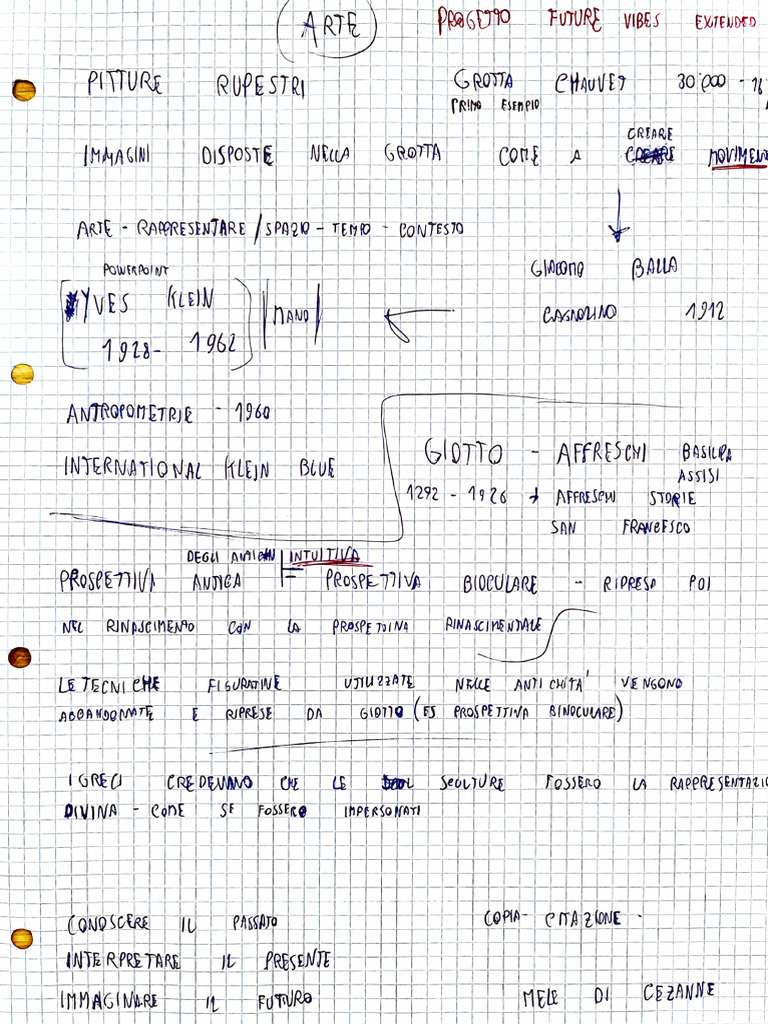 ARTE
PROGETTO FUTURE VIBES EXTENDED
PITTURE RUPESTRI
GROTTA CHAUVET 30'000 - 16
PRIMO ESEMPIO
IMMAGINI DISPOSTE NELLA GROTTA COME A CREARE MOVIMEN
ARTE - RAPPRESENTARE / SPAZIO - TEMPO - CONTESTO
GIACOMO BALLA
CAGNOLINO 1912
POWERPOINT
YVES KLEIN
1928 - 1962
MANO
ANTROPOMETRIE - 1960
INTERNATIONAL KLEIN BLUE
GIOTTO - AFFRESCHI BASILICA
ASSISI
1292 - 1926 → AFFRESCHI STORIE
SAN FRANCESCO
DEGLI INTUITIVA
PROSPETTIVA ANTICA = PROSPETTIVA BIOCULARE - RIPRESA POI
NEL RINASCIMENTO CON LA PROSPETTIVA RINASCIMENTALE
LE TECNICHE FIGURATIVE UTILIZZATE NELLE ANTICHITA' VENGONO
ABBANDONATE E RIPRESE DA GIOTTO (ES PROSPETTIVA BINOCULARE)
I GRECI CREDEVANO CHE LE SCULTURE FOSSERO LA RAPPRESENTAZIO
DIVINA - COME SE FOSSERO IMPERSONATI
CONOSCERE IL PASSATO
INTERPRETARE IL PRESENTE
IMMAGINARE IL FUTURO
COPIA - CITAZIONE -
MELE DI CEZANNE